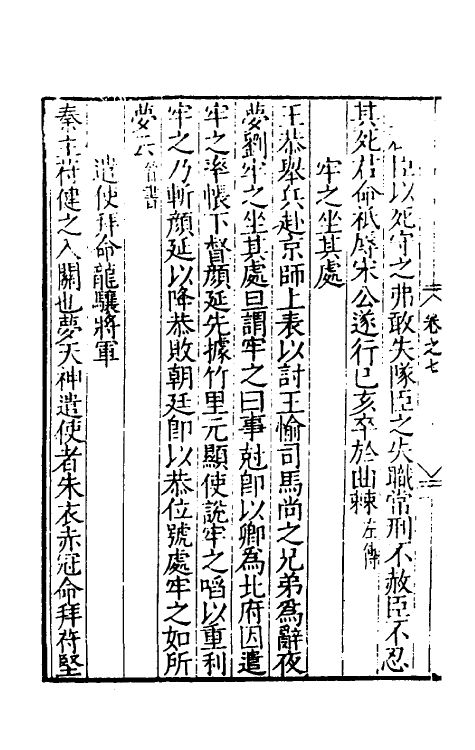 臣以死守之弗敢失隊臣之失職常刑不赦臣不忍
其死君命祇辱宋公遂行己亥卒於曲棘左傳
牢之坐其處
王恭舉兵赴京師上表以討王愉司馬尚之兄弟為辭夜
夢劉牢之坐其處旦謂牢之曰事尅卽以卿為北府因遣
牢之率帳下督顏延先據竹里元顯使說牢之啗以重利
牢之乃斬顏延以降恭敗朝廷卽以恭位號處牢之如所
夢云晉書
遣使拜命龍驤將軍
秦主苻健之入關也夢天神遣使者朱衣赤冠命拜苻堅
卷之七